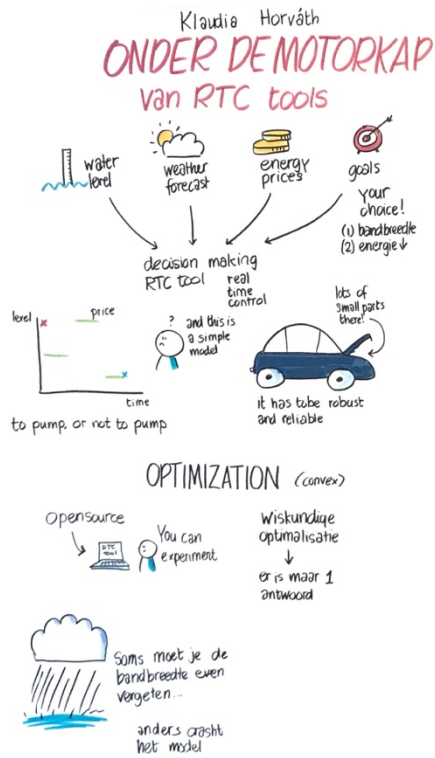 Klaudia Horváth
ONDER DE MOTORKAP
van RTC tools
water
level
weather
forecast
energy
prices
goals
your
choice!
(1) bandbreedte
(2) energie↓
decision making
RTC tool
real
time
control
level
price
time
to pump, or not to pump
?
and this is
a simple
model
lots of
small parts
there!
it has to be robust
and reliable
OPTIMIZATION (convex)
Opensource
RTC
TOOL
You can
experiment
Wiskundige
optimalisatie
er is maar 1
antwoord
Soms moet je de
bandbreedte even
vergeten...
anders crasht
het model